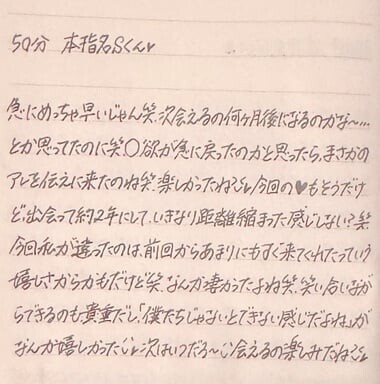 50分 本指名Sくん♥
急にめっちゃ早いじゃん笑.次会えるの何ヶ月後になるのかな〜…
とか思ってたのに笑〇欲が急に戻ったのかと思ったら、まさかの
アレを伝えに来たのね笑.楽しかったね 今回の♥もそうだけ
ど、出会って約2年にして、いきなり距離縮まった感じしない?笑
今回私が違ったのは、前回からあまりにもすぐ来てくれたっていう
嬉しさからかもだけど笑.なんか凄かったよね笑.笑い合いなが
らできるのも貴重だし、「僕たちじゃないとできない感じだよね」が
なんか嬉しかった 次はいつだろ〜 会えるの楽しみだねぇ